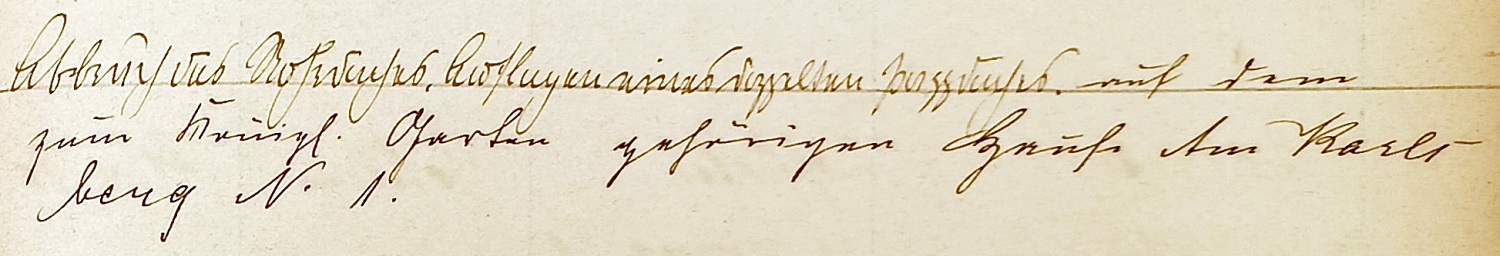 Abbruch des Rohrdaches. Auflagen eines doppelten Pappdaches. auf dem
zum Königl. Garten gehörigen Hause Am Karls-
berg N. 1.